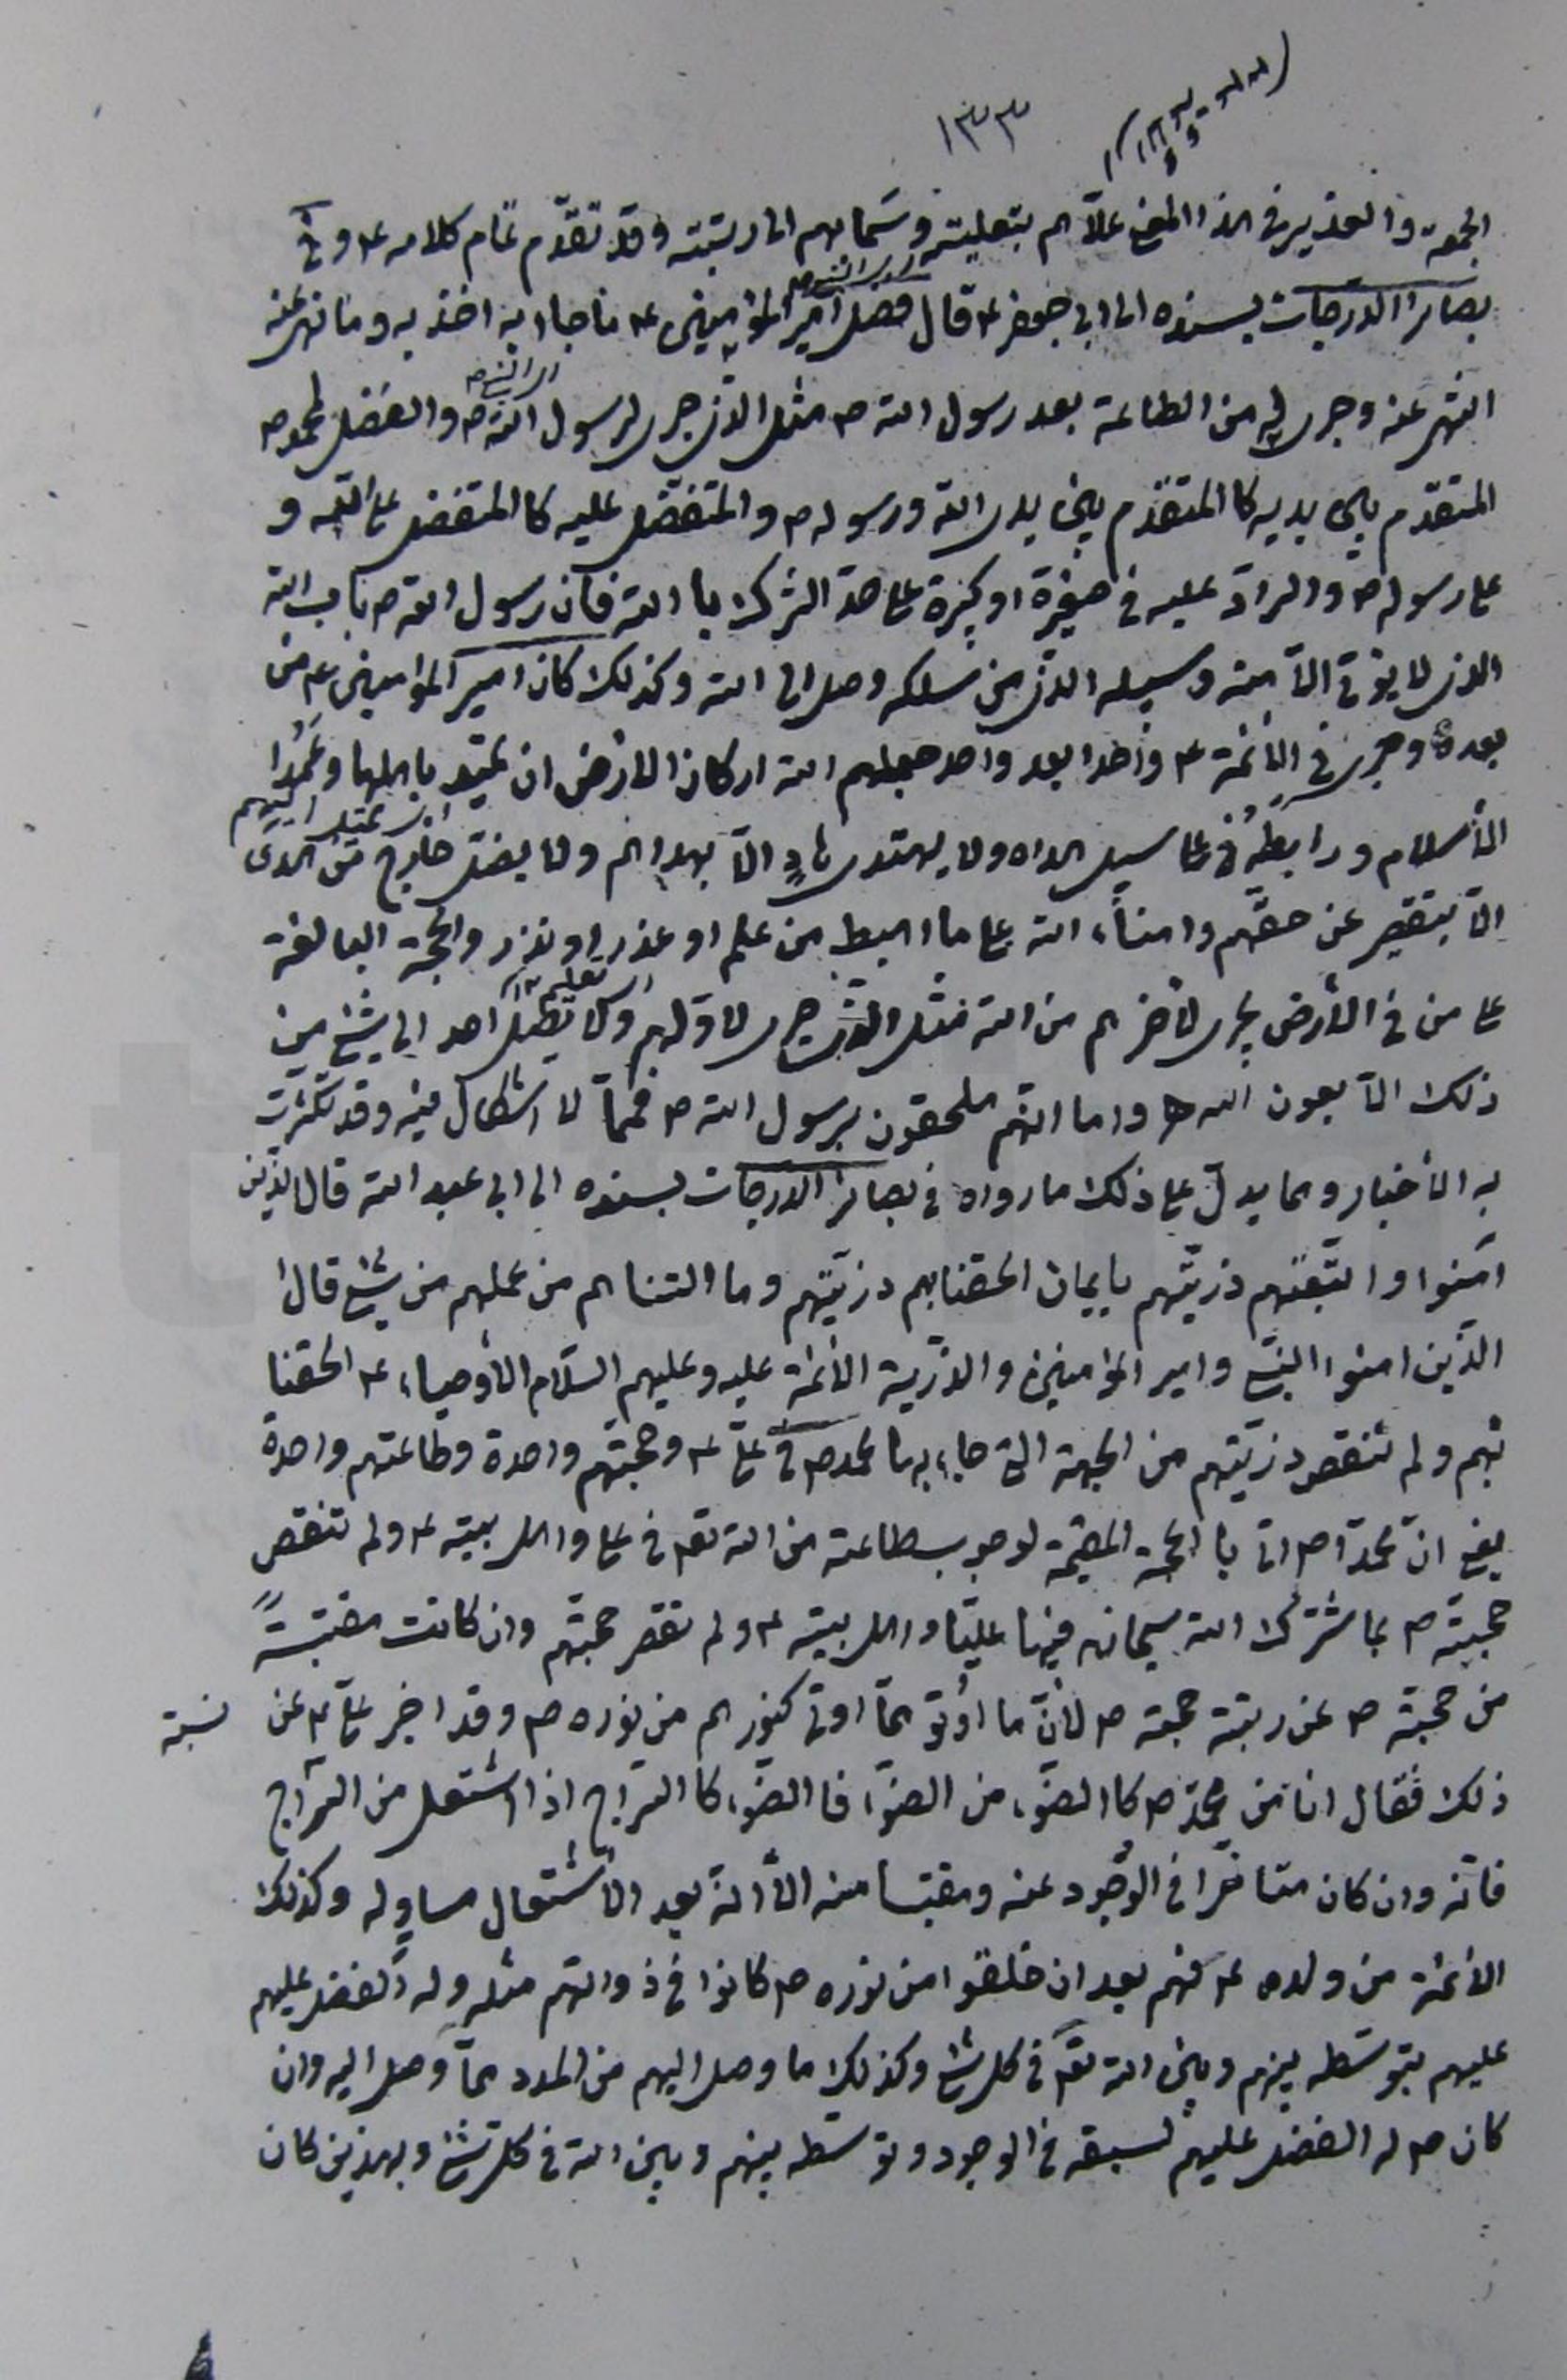 ١٣٣
الجمعة والغدير في هذا المعنى علاهم بتعليته وسما بهم الى رتبته وقد تقدّم تمام كلامه ع وفي
بصائر الدرجات بسنده الى ابي جعفر ع قال فضل امير المؤمنين ع ما جاء به اخذ به وما نهى عنه
انتهى عنه وجرى له من الطاعة بعد رسول الله ص مثل الذي جرى لرسول الله ص والفضل لمحمد ص
المتقدّم بين يديه كالمتقدّم بين يدي الله ورسوله ص والمتفضّل عليه كالمتفضل على الله و
على رسوله ص والرادّ عليه في صغيرة او كبيرة على حدّ الشرك بالله فان رسول الله ص باب الله
الذي لا يؤتى الّا منه وسبيله الذي من سلكه وصل الى الله وكذلك كان امير المؤمنين ع من
بعده وجرى في الأئمة ع واحدا بعد واحد جعلهم الله اركان الأرض ان تميد باهلها وعُمُدا
الأسلام ورابطُه على سبيل هداه ولا يهتدي هادٍ الّا بهداهم ولا يضل خارج من الهدى
الّا بتقصير عن حقّهم وامناء الله على ما اهبط من علم او عذر او نذر والحجة البالغة
على من في الأرض يجري لأخرهم من الله مثل الذي جرى لأوّلهم ولا يصل احد الى شيء من
ذلك الّا بعون الله وامّا انّهم ملحقون برسول الله ص فممّا لا اشكال فيه وقد تكثّرت
به الأخبار ومما يدلّ على ذلك ما رواه في بصائر الدرجات بسنده الى ابي عبد الله قال الذين
آمنوا واتّبعتهم ذرّيتهم بايمان الحقنا بهم ذرّيتهم وما التناهم من عملهم من شيء قال
الّذين امنوا النبيّ وامير المؤمنين والذرّية الأئمة عليه وعليهم السّلام الأوصياء ع الحقنا
بهم ولم تنقص ذرّيتهم من الجهة التي جاء بها محمد ص في عليّ ع وحجّتهم واحدة وطاعتهم واحدة
يعني انّ محمّدا ص اتى بالحجة المقيمة لوجوب طاعته من الله تعم في علي واهل بيته ع ولم تنقص
حجيته ص بما شرّك الله سبحانه فيها عليّا واهل بيته ع ولم تنقص حجّتهم وان كانت مقتبسةً
من حجّته ص عن رتبة حجته ص لأنّ ما اُوتو ممّا اوتي كنورهم من نوره ص وقد اخبر عليّ ع عن نسبة
ذلك فقال انا من محمّد ص كالضوء من الضوء فالضوء كالسّراج اذا اشتعل من السّراج
فانّه وان كان متأخّرا في الوجود عنه ومقتبسا منه الّا انّه بعد الأشتعال مساوٍ له وكذلك
الأئمة من ولده ع فهم بعد ان خلقوا من نوره ص كانوا في ذواتهم مثله وله الفضل عليهم
عليهم بتوسّطه بينهم وبين الله تعم في كل شيء وكذلك ما وصل اليهم من المدد ممّا وصل اليه وان
كان ص له الفضل عليهم لسبقه في الوجود وتوسّطه بينهم وبين الله في كل شيء وبهذين كان